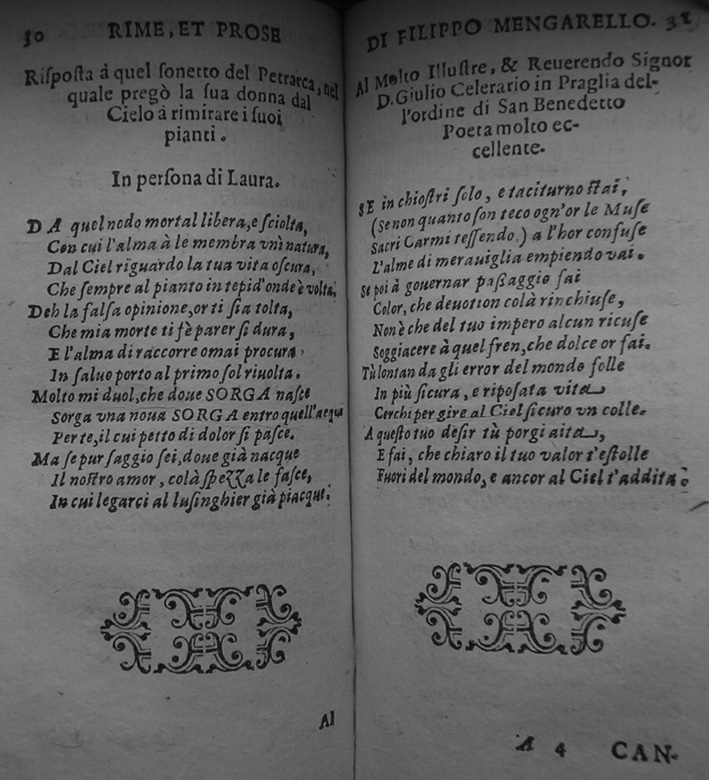 30 RIME, ET PROSE
Risposta à quel sonetto del Petrarca, nel
quale pregò la sua donna dal
Cielo à rimirare i suoi
pianti.
In persona di Laura.
DA quel nodo mortal libera, e sciolta,
Con cui l'alma à le membra vnì natura,
Dal Ciel riguardo la tua vita oscura,
Che sempre al pianto in tepid'onde è volta;
Deh la falsa opinione, or ti sia tolta,
Che mia morte ti fè parer sì dura,
E l'alma di raccorre omai procura
In saluo porto al primo sol riuolta.
Molto mi duol, che doue SORGA nasce
Sorga vna noua SORGA entro quell'acque
Per te, il cui petto di dolor si pasce.
Ma se pur saggio sei, doue già nacque
Il nostro amor, colà spezza le fasce,
In cui legarci al lusinghier già piacque.
Al
DI FILIPPO MENGARELLO. 31
Al Molto Illustre, & Reuerendo Signor
D. Giulio Celerario in Praglia del-
l'ordine di San Benedetto
Poeta molto ec-
cellente.
SE in chiostri solo, e taciturno stai,
(Se non quanto son teco ogn'or le Muse
Sacri Carmi tessendo) a l'hor confuse
L'alme di merauiglia empiendo vai.
Se poi à gouernar passaggio fai
Color, che deuotion colà rinchiuse,
Non è che del tuo impero alcun ricuse
Soggiacere à quel fren, che dolce or fai.
Tù lontan da gli error del mondo folle
In più sicura, e riposata vita
Cerchi per gire al Ciel sicuro vn colle.
A questo tuo desir tù porgi aita,
E fai, che chiaro il tuo valor t'estolle
Fuori del mondo, e ancor al Ciel t'addita.
A 4 CAN-